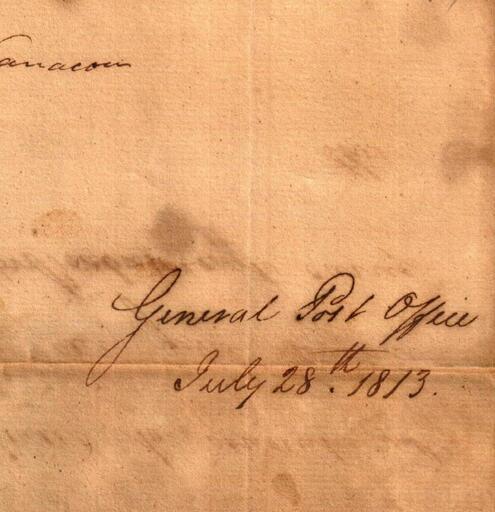 General Post Office
July 28th. 1813.